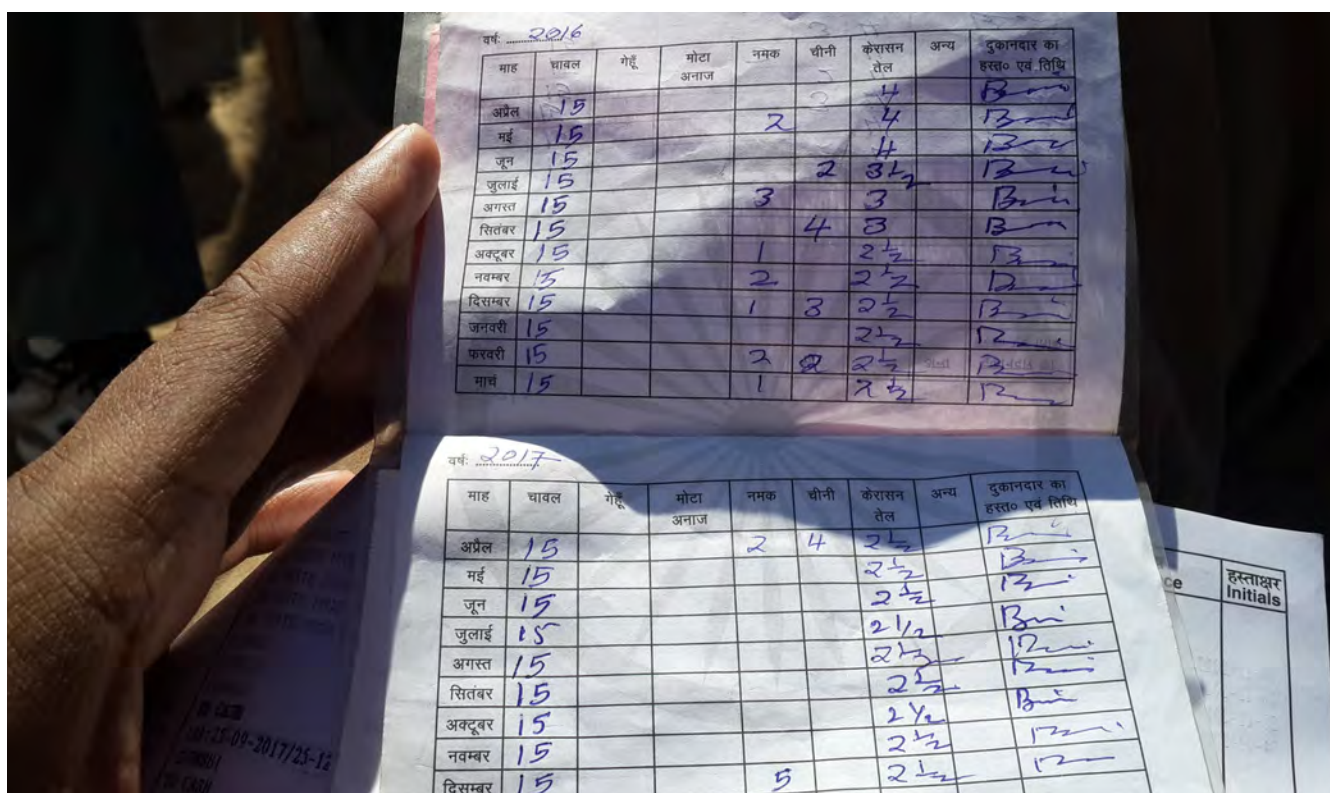 वर्षः 2016
माह चावल गेहूँ मोटा अनाज नमक चीनी केरासन तेल अन्य दुकानदार का हस्त० एवं तिथि
अप्रैल 15 4
मई 15 2 4
जून 15 4
जुलाई 15 2 3 1/2
अगस्त 15 3 3
सितंबर 15 4 3
अक्टूबर 15 1 2 1/2
नवम्बर 15 2 2 1/2
दिसम्बर 15 1 3 2 1/2
जनवरी 15 2 1/2
फरवरी 15 2 2 2 1/2
मार्च 15 1 2 1/2
वर्षः 2017
माह चावल गेहूँ मोटा अनाज नमक चीनी केरासन तेल अन्य दुकानदार का हस्त० एवं तिथि
अप्रैल 15 2 4 2 1/2
मई 15 2 1/2
जून 15 2 1/2
जुलाई 15 2 1/2
अगस्त 15 2 1/2
सितंबर 15 2 1/2
अक्टूबर 15 2 1/2
नवम्बर 15 2 1/2
दिसम्बर 15 5 2 1/2
हस्ताक्षर
Initials
25-09-2017/25-12